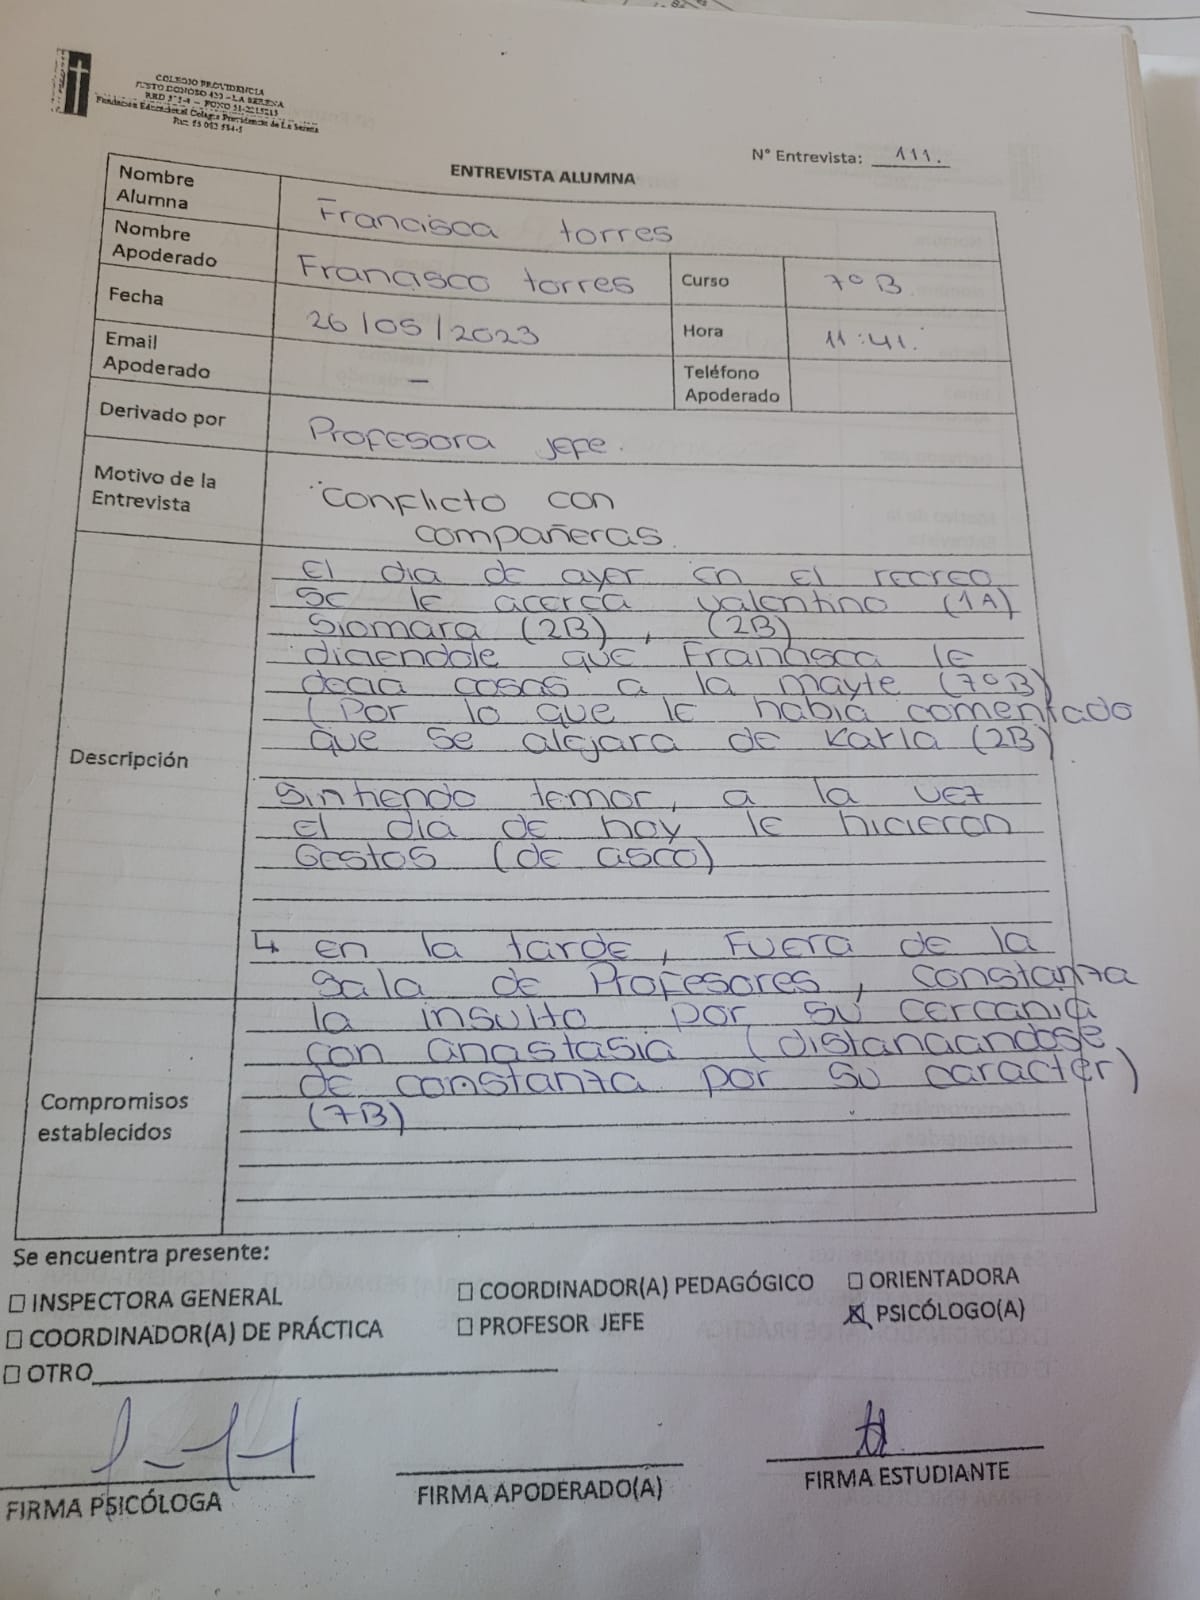 COLEGIO PROVIDENCIA
JUSTO DONOSO 420 - LA SERENA
Fundación Educacional Colegio Providencia de La Serena
N° Entrevista: 111.
ENTREVISTA ALUMNA
Nombre Alumna Francisca torres
Nombre Apoderado Francisco torres Curso 7° B.
Fecha 26/05/2023 Hora 11:41.
Email Apoderado - Teléfono Apoderado
Derivado por Profesora jefe.
Motivo de la Entrevista Conflicto con
compañeras.
Descripción
El dia de ayer en el recreo
se le acerca valentino (1A)
Siomara (2B), (2B)
diciendole que Francisca le
decia cosas a la mayte (7°B)
(Por lo que le habia comentado
que se alejara de Karla (2B)
Sintiendo temor, a la vez
El dia de hoy le hicieron
Gestos (de asco)
↳ en la tarde, Fuera de la
sala de Profesores, constanza
la insulto por su cercania
con anastasia (distanciandose
de constanza por su caracter)
(7B)
Compromisos establecidos
Se encuentra presente:
☐ INSPECTORA GENERAL ☐ COORDINADOR(A) PEDAGÓGICO ☐ ORIENTADORA
☐ COORDINADOR(A) DE PRÁCTICA ☐ PROFESOR JEFE ☒ PSICÓLOGO(A)
☐ OTRO
FIRMA PSICÓLOGA FIRMA APODERADO(A) FIRMA ESTUDIANTE